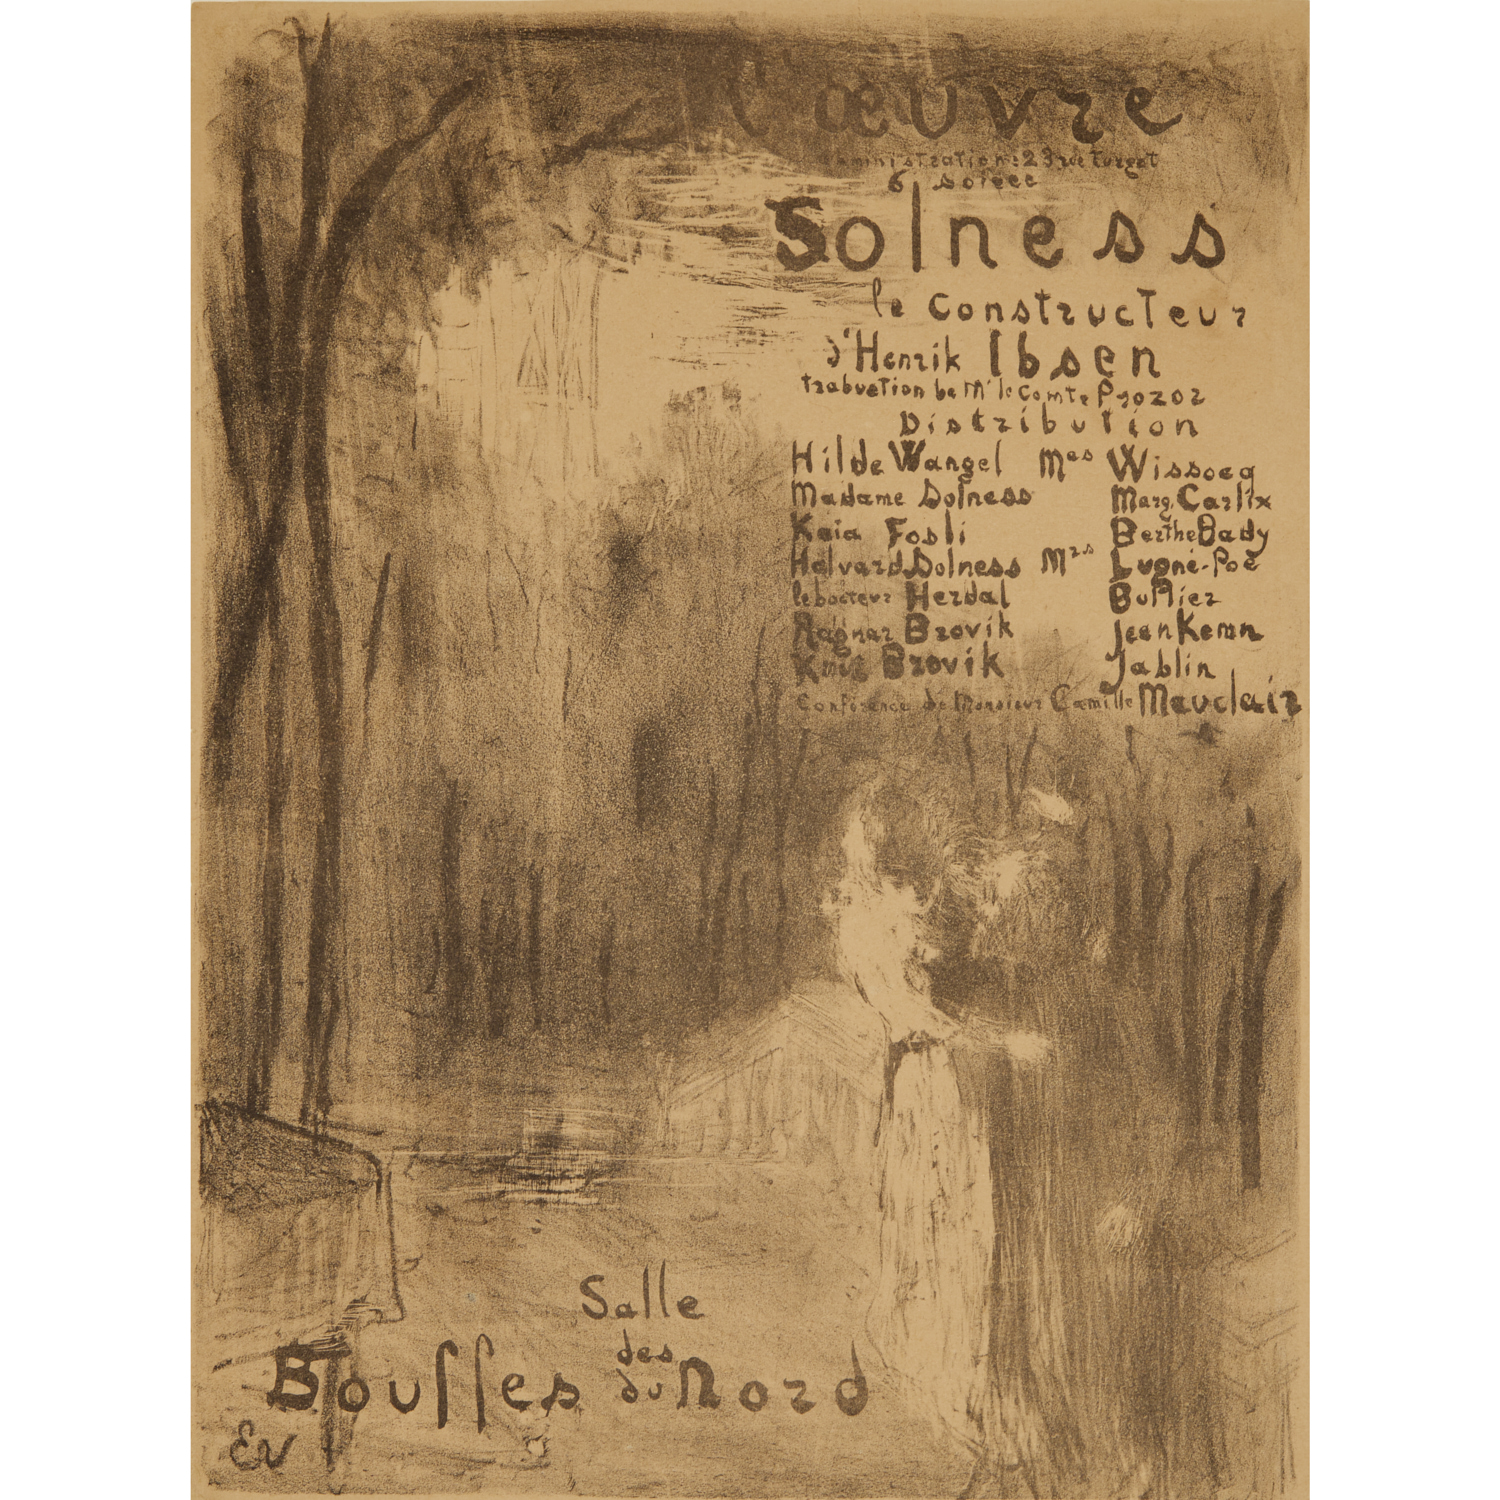 L'œuvre
administration: 23 rue turgot
6e soiree
Solness
le constructeur
d'Henrik Ibsen
traduction de Mr le comte Prozor
Distribution
Hilde Wangel Mes Wissocq
Madame Solness Marg. Carlix
Kaia Fosli Berthe Bady
Halvard Solness Mrs Lugné-Poe
le docteur Herdal
Ragnar Brovik Jean Keman
Knut Brovik Jablin
Conférence de Monsieur Camille Mauclair
Salle
des
Bouffes du Nord
EV